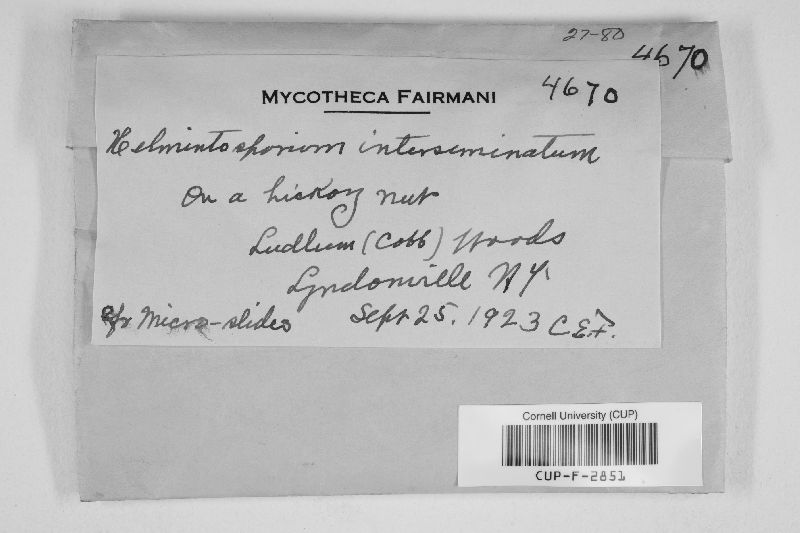 27-80
4670
MYCOTHECA FAIRMANI
4670
Helmintosporium interseminatum
On a hickory nut
Ludlum (Cobb) Woods
Lyndonville NY.
Micro-slides
Sept 25. 1923 C.E.F.
Cornell University (CUP)
CUP-F-2851